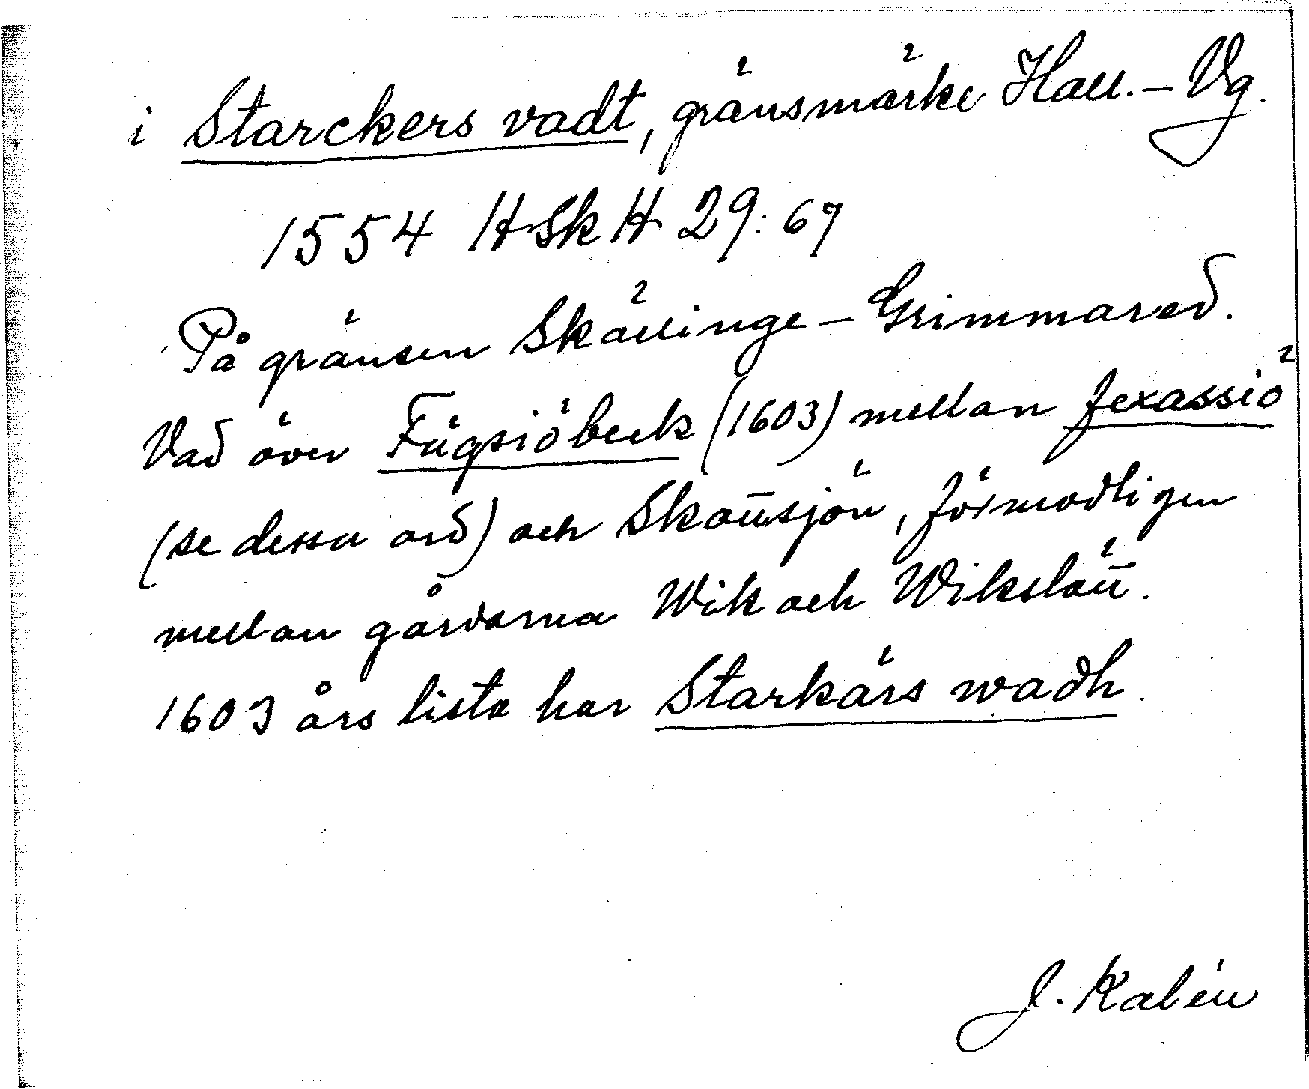 i Starckers vadt, gränsmärke Hall.–Vg.
1554 HSkH 29:67
På gränsen Skällinge–Grimmared.
Vad över Fügsiöbeck (1603) mellan fexassiö
(se dessa ord) och Skottsjön, förmodligen
mellan gårdarna Wik och Wikslätt.
1603 års lista har Starkärs wadh.
J. Kalén